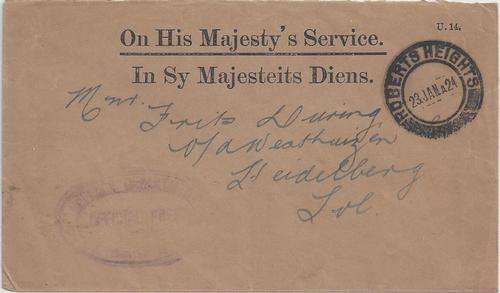 U.14.
On His Majesty's Service.
In Sy Majesteits Diens.
ROBERTS HEIGHTS
23 JAN 24
Mnr.
Frits During
Heidelberg
Tvl.
OFFICIAL FREE